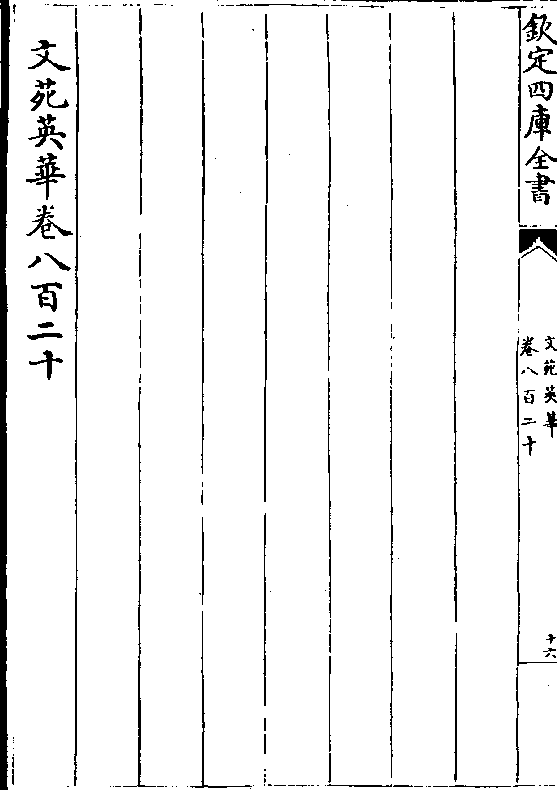 欽定四庫全書
文苑英華
卷八百二十
十六
文苑英華卷八百二十